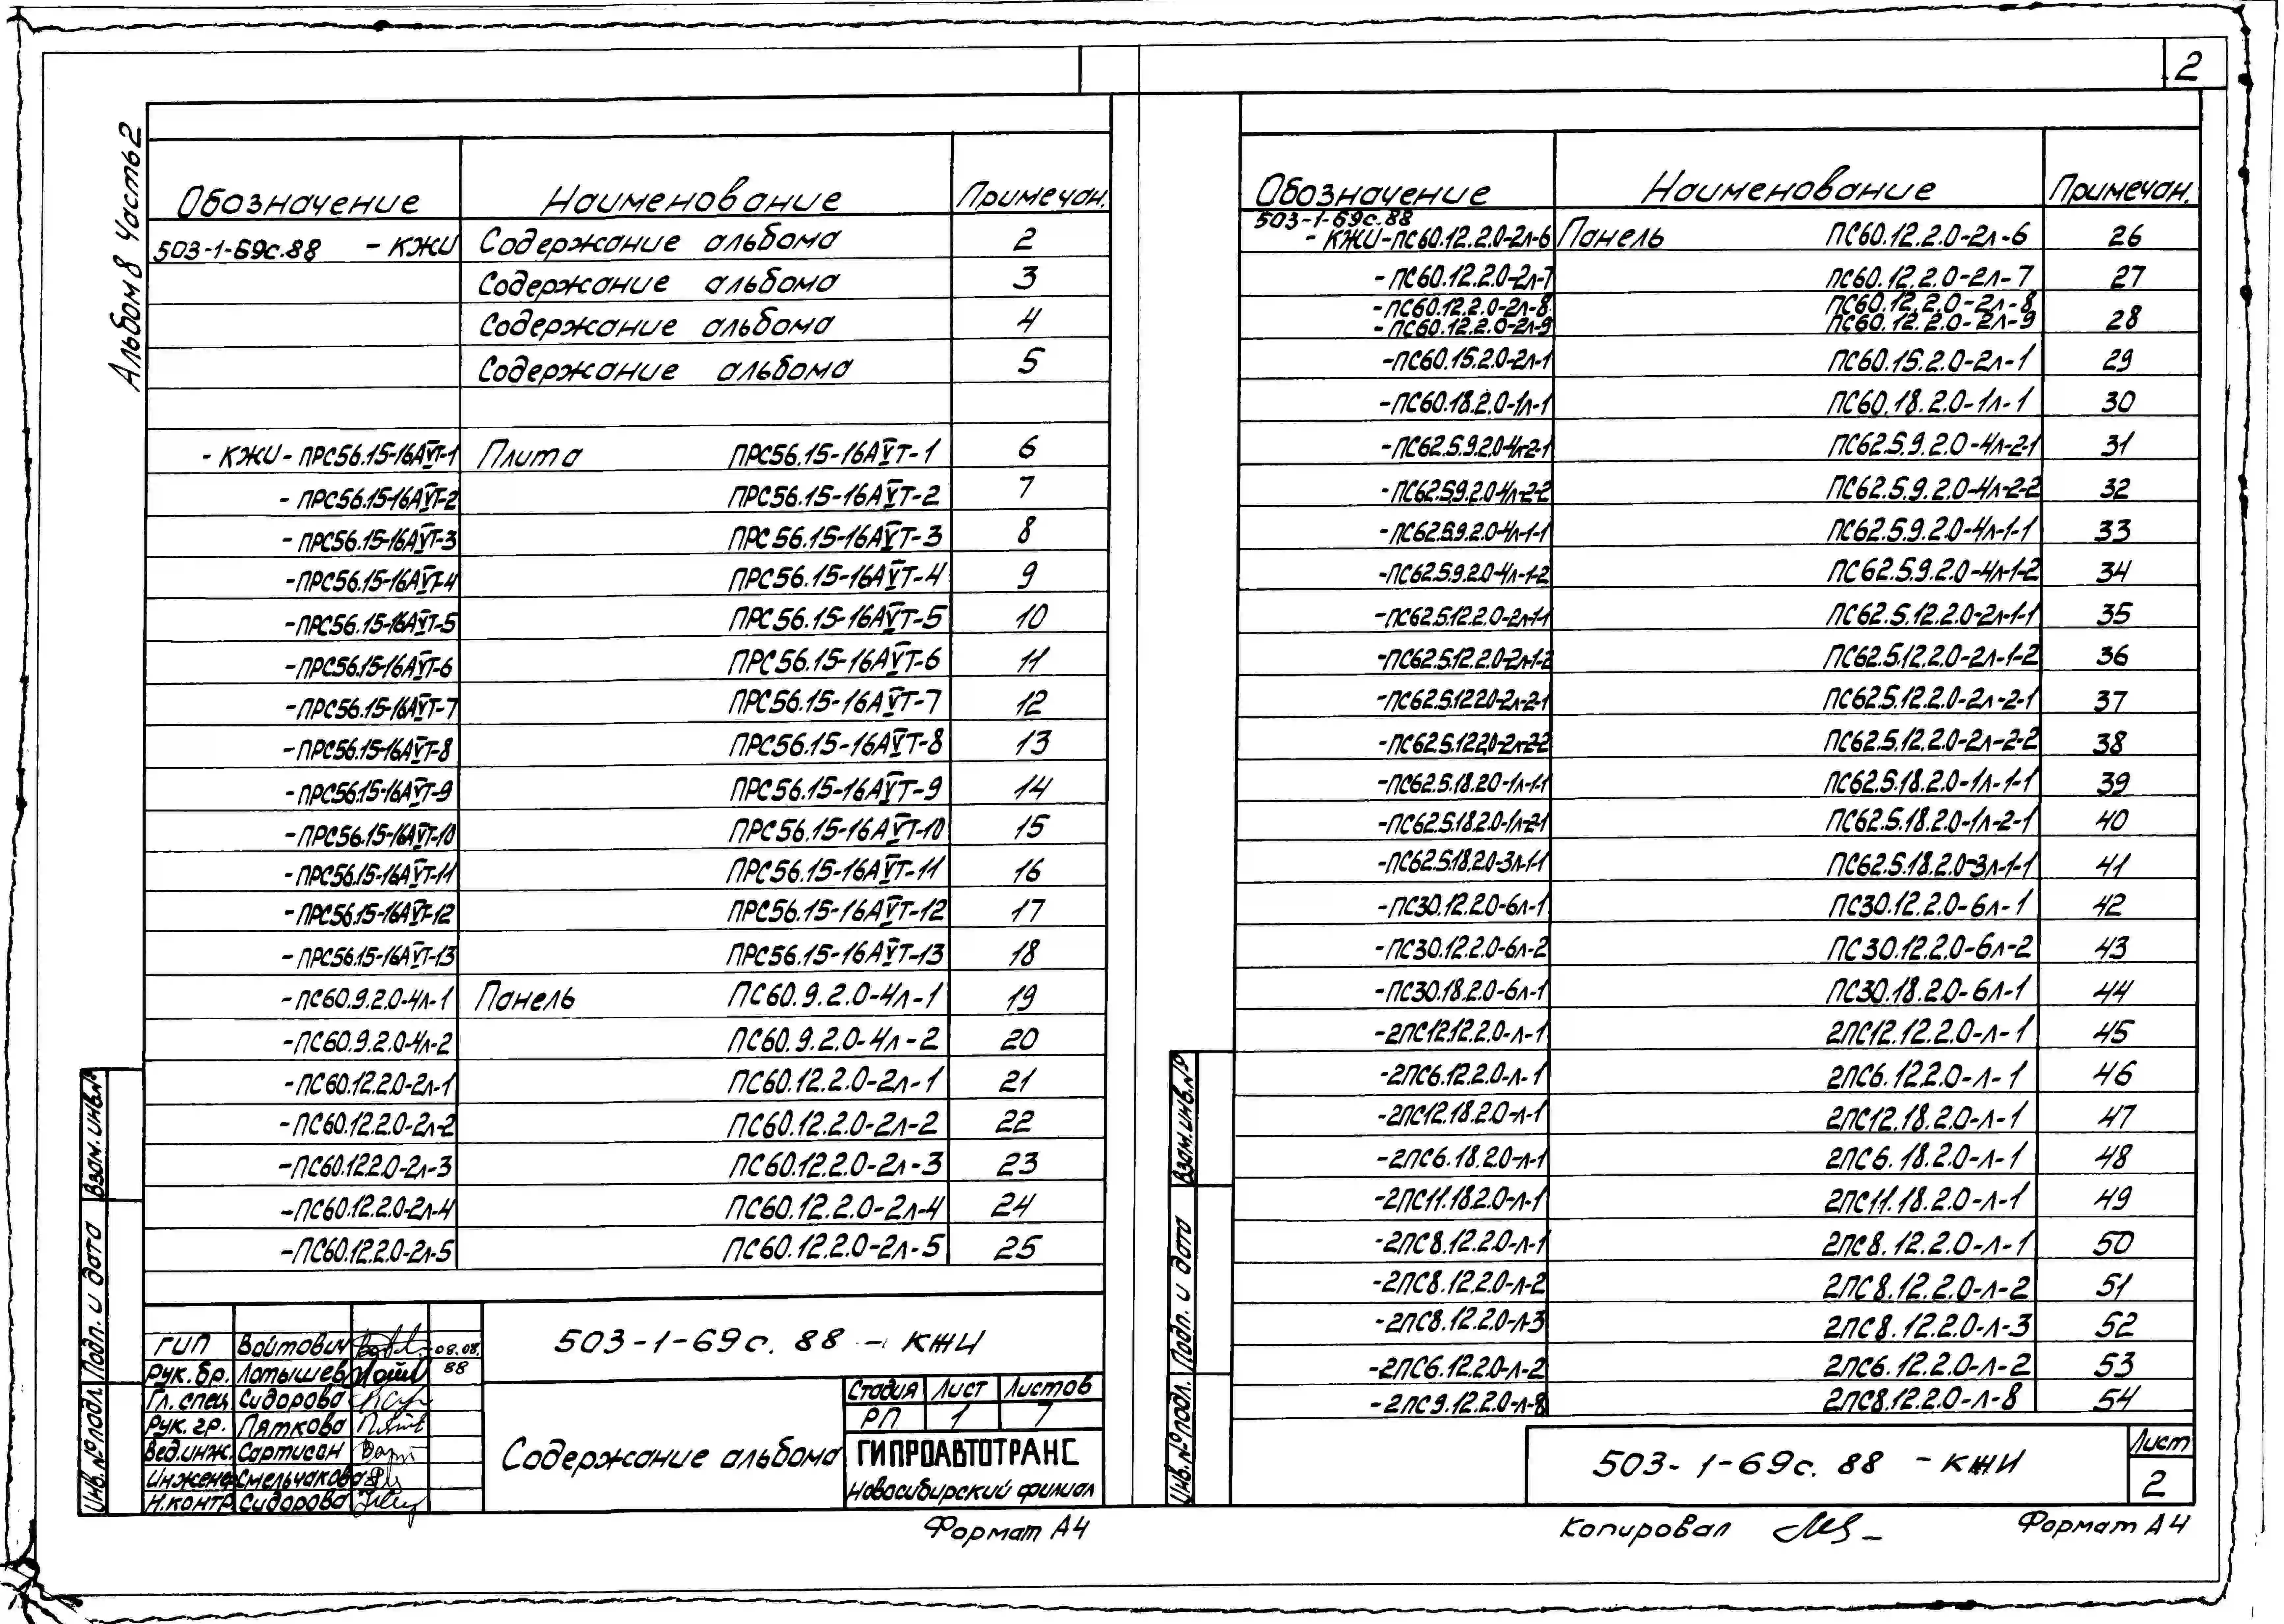 2
Альбом 8 Часть 2
Обозначение Наименование Примечан.
503-1-69с.88 - КЖИ Содержание альбома 2
Содержание альбома 3
Содержание альбома 4
Содержание альбома 5
- КЖИ - ПРС56.15-16АVТ-1 Плита ПРС56.15-16АVТ-1 6
- ПРС56.15-16АVТ-2 ПРС56.15-16АVТ-2 7
- ПРС56.15-16АVТ-3 ПРС56.15-16АVТ-3 8
- ПРС56.15-16АVТ-4 ПРС56.15-16АVТ-4 9
- ПРС56.15-16АVТ-5 ПРС56.15-16АVТ-5 10
- ПРС56.15-16АVТ-6 ПРС56.15-16АVТ-6 11
- ПРС56.15-16АVТ-7 ПРС56.15-16АVТ-7 12
- ПРС56.15-16АVТ-8 ПРС56.15-16АVТ-8 13
- ПРС56.15-16АVТ-9 ПРС56.15-16АVТ-9 14
- ПРС56.15-16АVТ-10 ПРС56.15-16АVТ-10 15
- ПРС56.15-16АVТ-11 ПРС56.15-16АVТ-11 16
- ПРС56.15-16АVТ-12 ПРС56.15-16АVТ-12 17
- ПРС56.15-16АVТ-13 ПРС56.15-16АVТ-13 18
-ПС60.9.2.0-4л-1 Панель ПС60.9.2.0-4л-1 19
-ПС60.9.2.0-4л-2 ПС60.9.2.0-4л-2 20
-ПС60.12.2.0-2л-1 ПС60.12.2.0-2л-1 21
-ПС60.12.2.0-2л-2 ПС60.12.2.0-2л-2 22
-ПС60.12.2.0-2л-3 ПС60.12.2.0-2л-3 23
-ПС60.12.2.0-2л-4 ПС60.12.2.0-2л-4 24
-ПС60.12.2.0-2л-5 ПС60.12.2.0-2л-5 25
Взам. инв.№
Подп. и дата
Инв.№подл.
ГИП Войтович 08.08.
Рук.бр. Латышев 88
Гл.спец Сидорова
Рук.гр. Пяткова
Вед.инж. Сартисон
Инженер Смельчакова
Н.контр. Сидорова
503-1-69с.88 - КЖИ
Содержание альбома
Стадия Лист Листов
РП 1 7
ГИПРОАВТОТРАНС
Новосибирский филиал
Формат А4
Обозначение Наименование Примечан.
503-1-69с.88
- КЖИ-ПС60.12.2.0-2л-6 Панель ПС60.12.2.0-2л-6 26
-ПС60.12.2.0-2л-7 ПС60.12.2.0-2л-7 27
-ПС60.12.2.0-2л-8 ПС60.12.2.0-2л-8
-ПС60.12.2.0-2л-9 ПС60.12.2.0-2л-9 28
-ПС60.15.2.0-2л-1 ПС60.15.2.0-2л-1 29
-ПС60.18.2.0-1л-1 ПС60.18.2.0-1л-1 30
-ПС62.5.9.2.0-4л-2-1 ПС62.5.9.2.0-4л-2-1 31
-ПС62.5.9.2.0-4л-2-2 ПС62.5.9.2.0-4л-2-2 32
-ПС62.5.9.2.0-4л-1-1 ПС62.5.9.2.0-4л-1-1 33
-ПС62.5.9.2.0-4л-1-2 ПС62.5.9.2.0-4л-1-2 34
-ПС62.5.12.2.0-2л-1-1 ПС62.5.12.2.0-2л-1-1 35
-ПС62.5.12.2.0-2л-1-2 ПС62.5.12.2.0-2л-1-2 36
-ПС62.5.12.2.0-2л-2-1 ПС62.5.12.2.0-2л-2-1 37
-ПС62.5.12.2.0-2л-2-2 ПС62.5.12.2.0-2л-2-2 38
-ПС62.5.18.2.0-1л-1-1 ПС62.5.18.2.0-1л-1-1 39
-ПС62.5.18.2.0-1л-2-1 ПС62.5.18.2.0-1л-2-1 40
-ПС62.5.18.2.0-3л-1-1 ПС62.5.18.2.0-3л-1-1 41
-ПС30.12.2.0-6л-1 ПС30.12.2.0-6л-1 42
-ПС30.12.2.0-6л-2 ПС30.12.2.0-6л-2 43
-ПС30.18.2.0-6л-1 ПС30.18.2.0-6л-1 44
-2ПС12.12.2.0-л-1 2ПС12.12.2.0-л-1 45
-2ПС6.12.2.0-л-1 2ПС6.12.2.0-л-1 46
-2ПС12.18.2.0-л-1 2ПС12.18.2.0-л-1 47
-2ПС6.18.2.0-л-1 2ПС6.18.2.0-л-1 48
-2ПС11.18.2.0-л-1 2ПС11.18.2.0-л-1 49
-2ПС8.12.2.0-л-1 2ПС8.12.2.0-л-1 50
-2ПС8.12.2.0-л-2 2ПС8.12.2.0-л-2 51
-2ПС8.12.2.0-л-3 2ПС8.12.2.0-л-3 52
-2ПС6.12.2.0-л-2 2ПС6.12.2.0-л-2 53
-2ПС9.12.2.0-л-8 2ПС8.12.2.0-л-8 54
Взам.инв.№
Подп. и дата
Инв.№подл.
503-1-69с.88 - КЖИ
Лист
2
Копировал
Формат А4